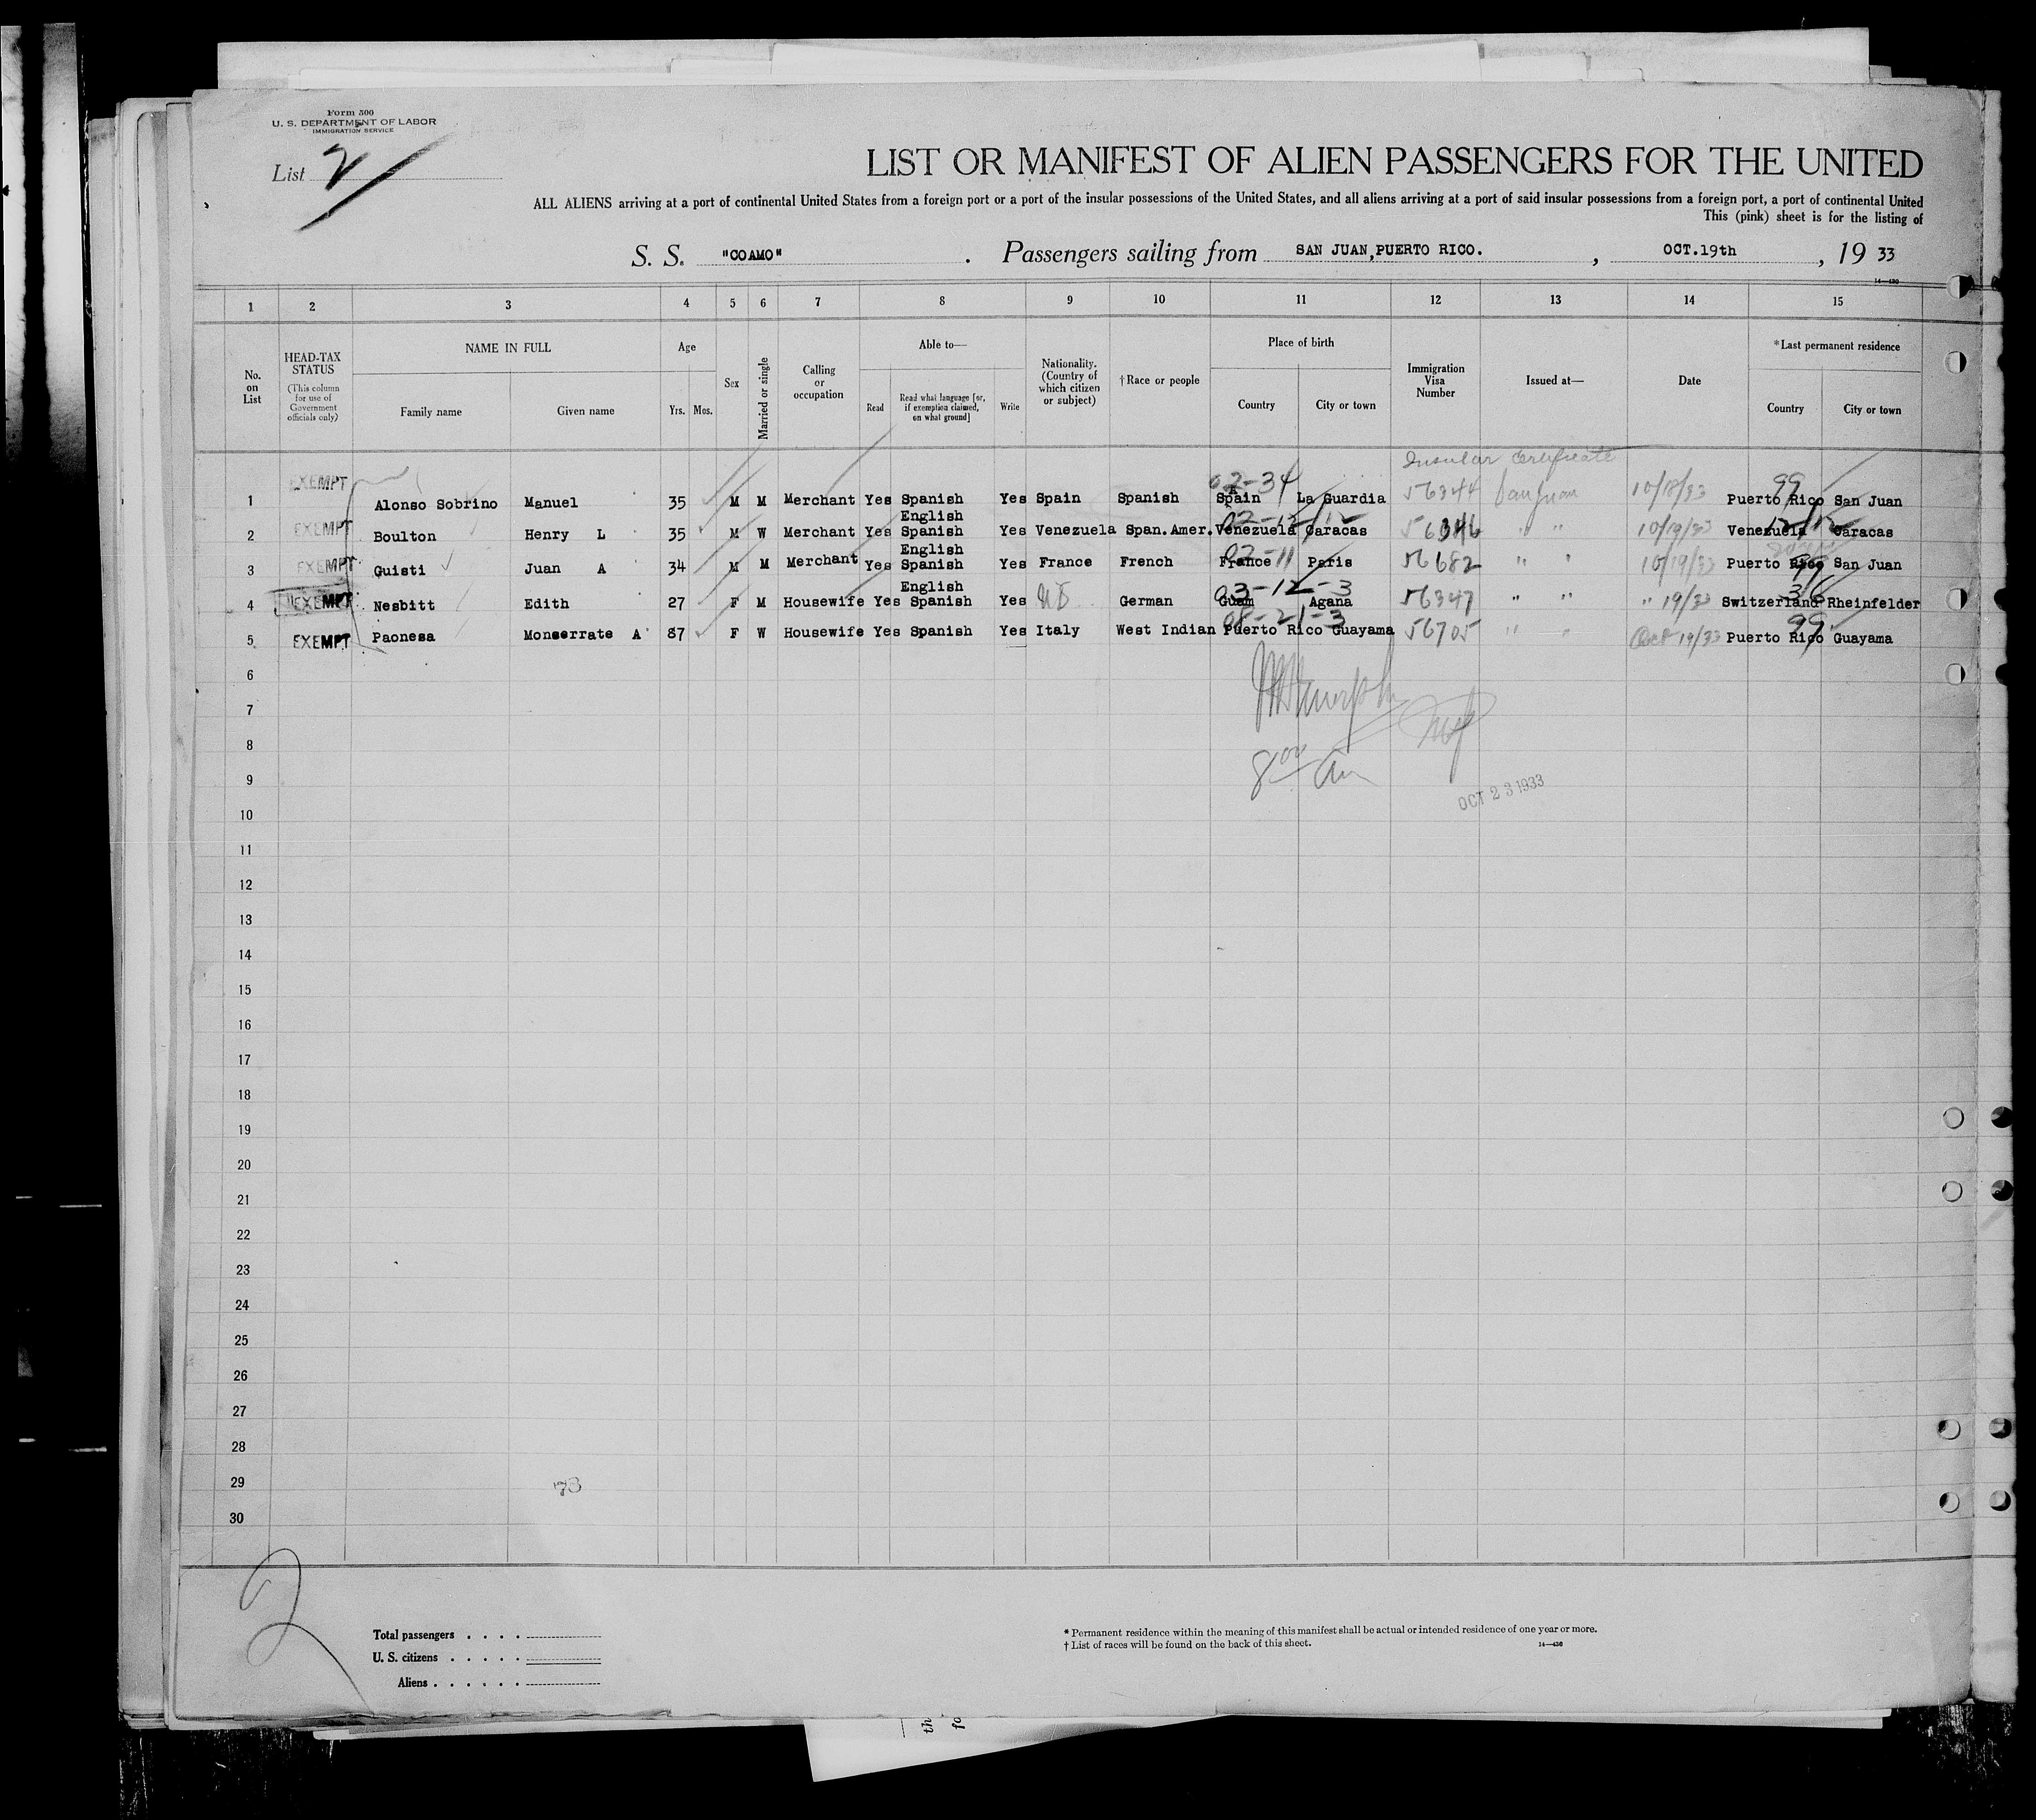 Form 500
U. S. DEPARTMENT OF LABOR
IMMIGRATION SERVICE
List 2
LIST OR MANIFEST OF ALIEN PASSENGERS FOR THE UNITED
ALL ALIENS arriving at a port of continental United States from a foreign port or a port of the insular possessions of the United States, and all aliens arriving at a port of said insular possessions from a foreign port, a port of continental United
This (pink) sheet is for the listing of
S. S. "COAMO" . Passengers sailing from SAN JUAN,PUERTO RICO. , OCT.19th , 19 33
14—430
1 2 3 4 5 6 7 8 9 10 11 12 13 14 15
No. on List
HEAD-TAX STATUS
(This column for use of Government officials only)
NAME IN FULL
Family name Given name
Age
Yrs. Mos.
Sex
Married or single
Calling or occupation
Able to—
Read
Read what language [or, if exemption claimed, on what ground]
Write
Nationality. (Country of which citizen or subject)
†Race or people
Place of birth
Country City or town
Immigration Visa Number
Issued at—
Date
*Last permanent residence
Country City or town
Insular Certificate
EXEMPT 02-34 99
1 Alonso Sobrino Manuel 35 M M Merchant Yes Spanish Yes Spain Spanish Spain La Guardia 56344 San Juan 10/18/33 Puerto Rico San Juan
English
EXEMPT
2 Boulton Henry L 35 M W Merchant Yes Spanish Yes Venezuela Span.Amer. Venezuela Caracas 56346 " " 10/19/33 Venezuela Caracas
English
EXEMPT 02-11 99
3 Guisti Juan A 34 M M Merchant Yes Spanish Yes France French France Paris 56682 " " 10/19/33 Puerto Rico San Juan
English
EXEMPT 03-12-3 36
4 Nesbitt Edith 27 F M Housewife Yes Spanish Yes German Guam Agana 56347 " " " 19/33 Switzerland Rheinfelder
EXEMPT 08-21-3 99
5 Paonesa Monserrate A 87 F W Housewife Yes Spanish Yes Italy West Indian Puerto Rico Guayama 56705 " " Oct 19/33 Puerto Rico Guayama
6
7
8
8 00 am
9
OCT 23 1933
10
11
12
13
14
15
16
17
18
19
20
21
22
23
24
25
26
27
28
29
30
2
Total passengers . . . .
U. S. citizens . . . . .
Aliens . . . . . .
* Permanent residence within the meaning of this manifest shall be actual or intended residence of one year or more.
† List of races will be found on the back of this sheet.
14—430